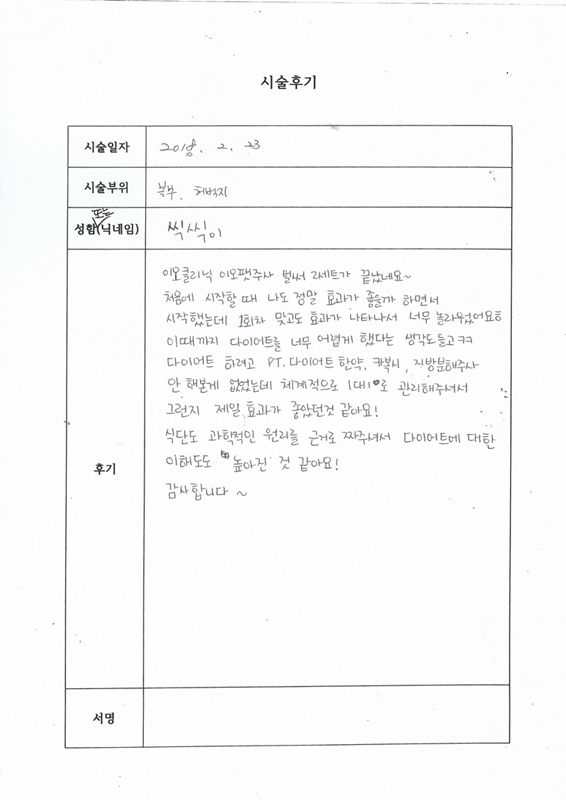 시술후기
시술일자 2018. 2. 23
시술부위 복부. 허벅지
또는
성함(닉네임) 씩씩이
후기
이오클리닉 이오팻주사 벌써 2세트가 끝났네요~
처음에 시작할 때 나도 정말 효과가 좋을까 하면서
시작했는데 1회차 맞고도 효과가 나타나서 너무 놀라웠었어요ㅎ
이때까지 다이어트를 너무 어렵게 했다는 생각도 들고 ㅋㅋ
다이어트 하려고 PT. 다이어트 한약, 카복시, 지방분해주사
안 해본게 없었는데 체계적으로 1대1로 관리해주셔서
그런지 제일 효과가 좋았던것 같아요!
식단도 과학적인 원리를 근거로 짜주셔서 다이어트에 대한
이해도도 높아진 것 같아요!
감사합니다 ~
서명